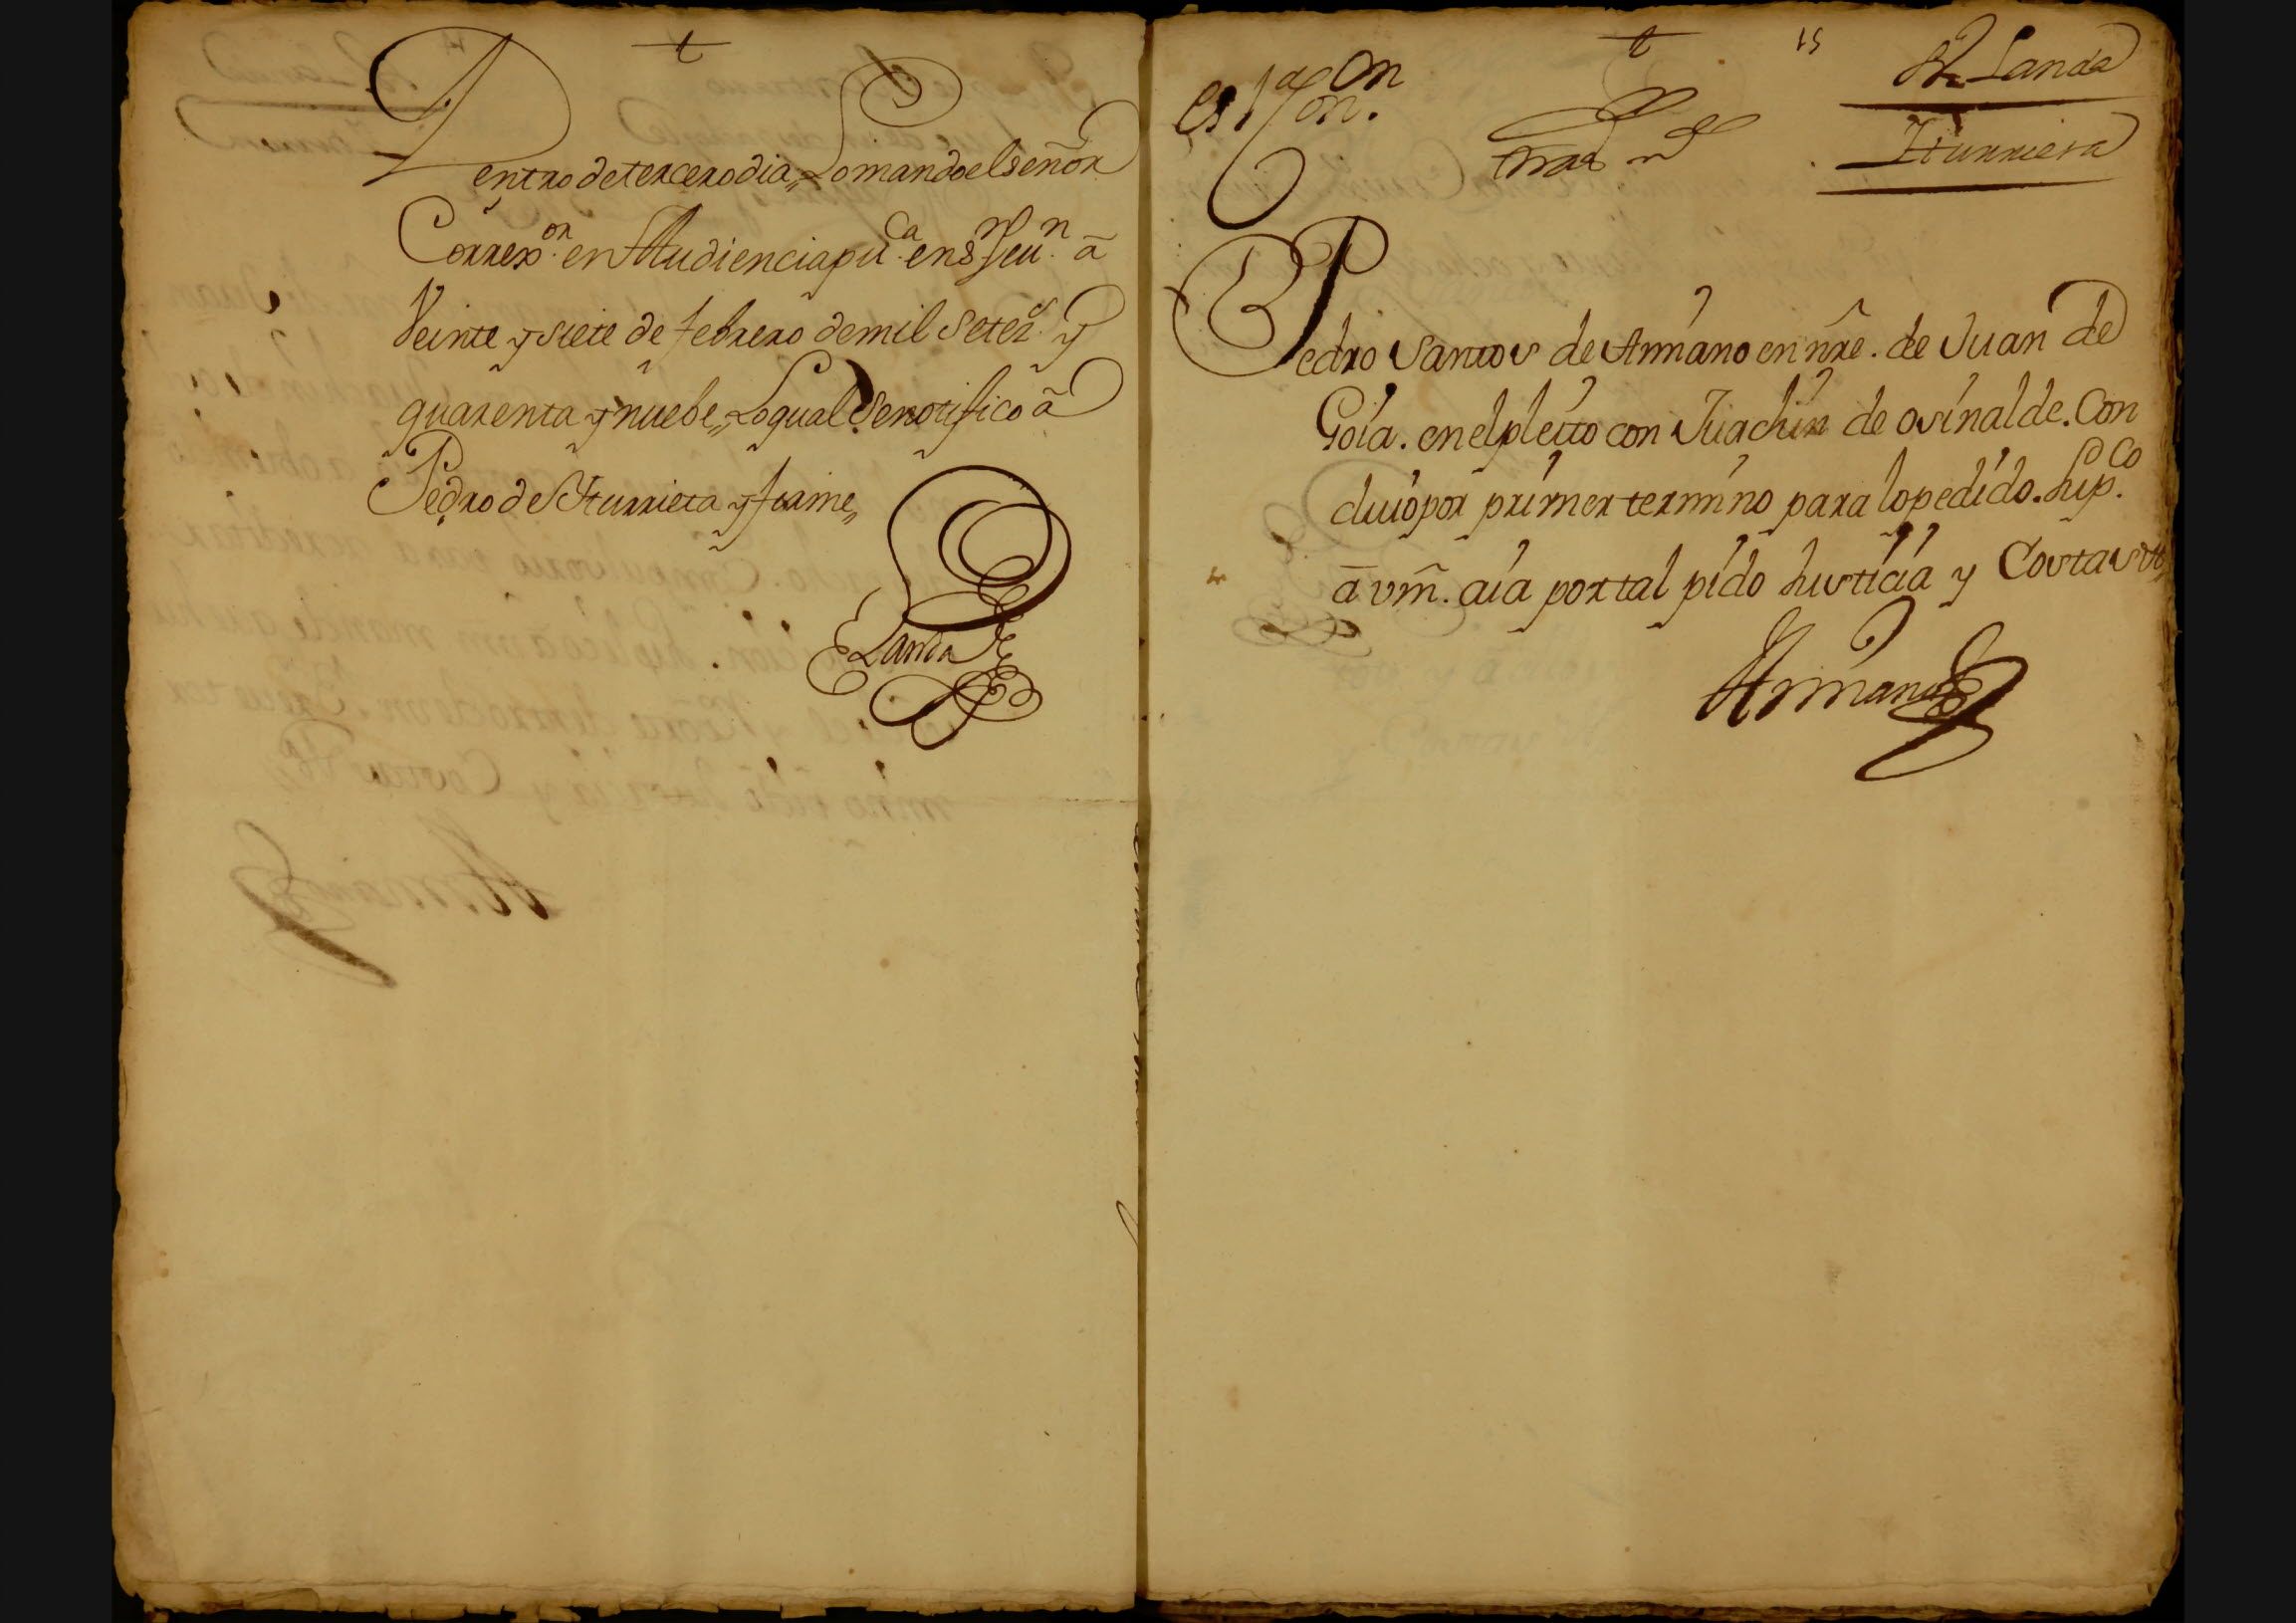 t
Dentro de tercero dia, Lo mando el señor
Correx.or en Audiencia pu.ca en S.n Seu.n â
Veinte y siete de febrero de mil setez.s y
quarenta y nuebe, Lo qual se notifico â
Pedro de Iturrieta y firme,
Landa
t
15
Landa
Iturrieta
Pedro Santos de Armano en nre. de Juan de
Goia. en el pleito con Juachin de osinalde. Con
cluió por primer termino para lo pedido. sup.co
â vm. aia por tal pido Justicia y Costas
Armano